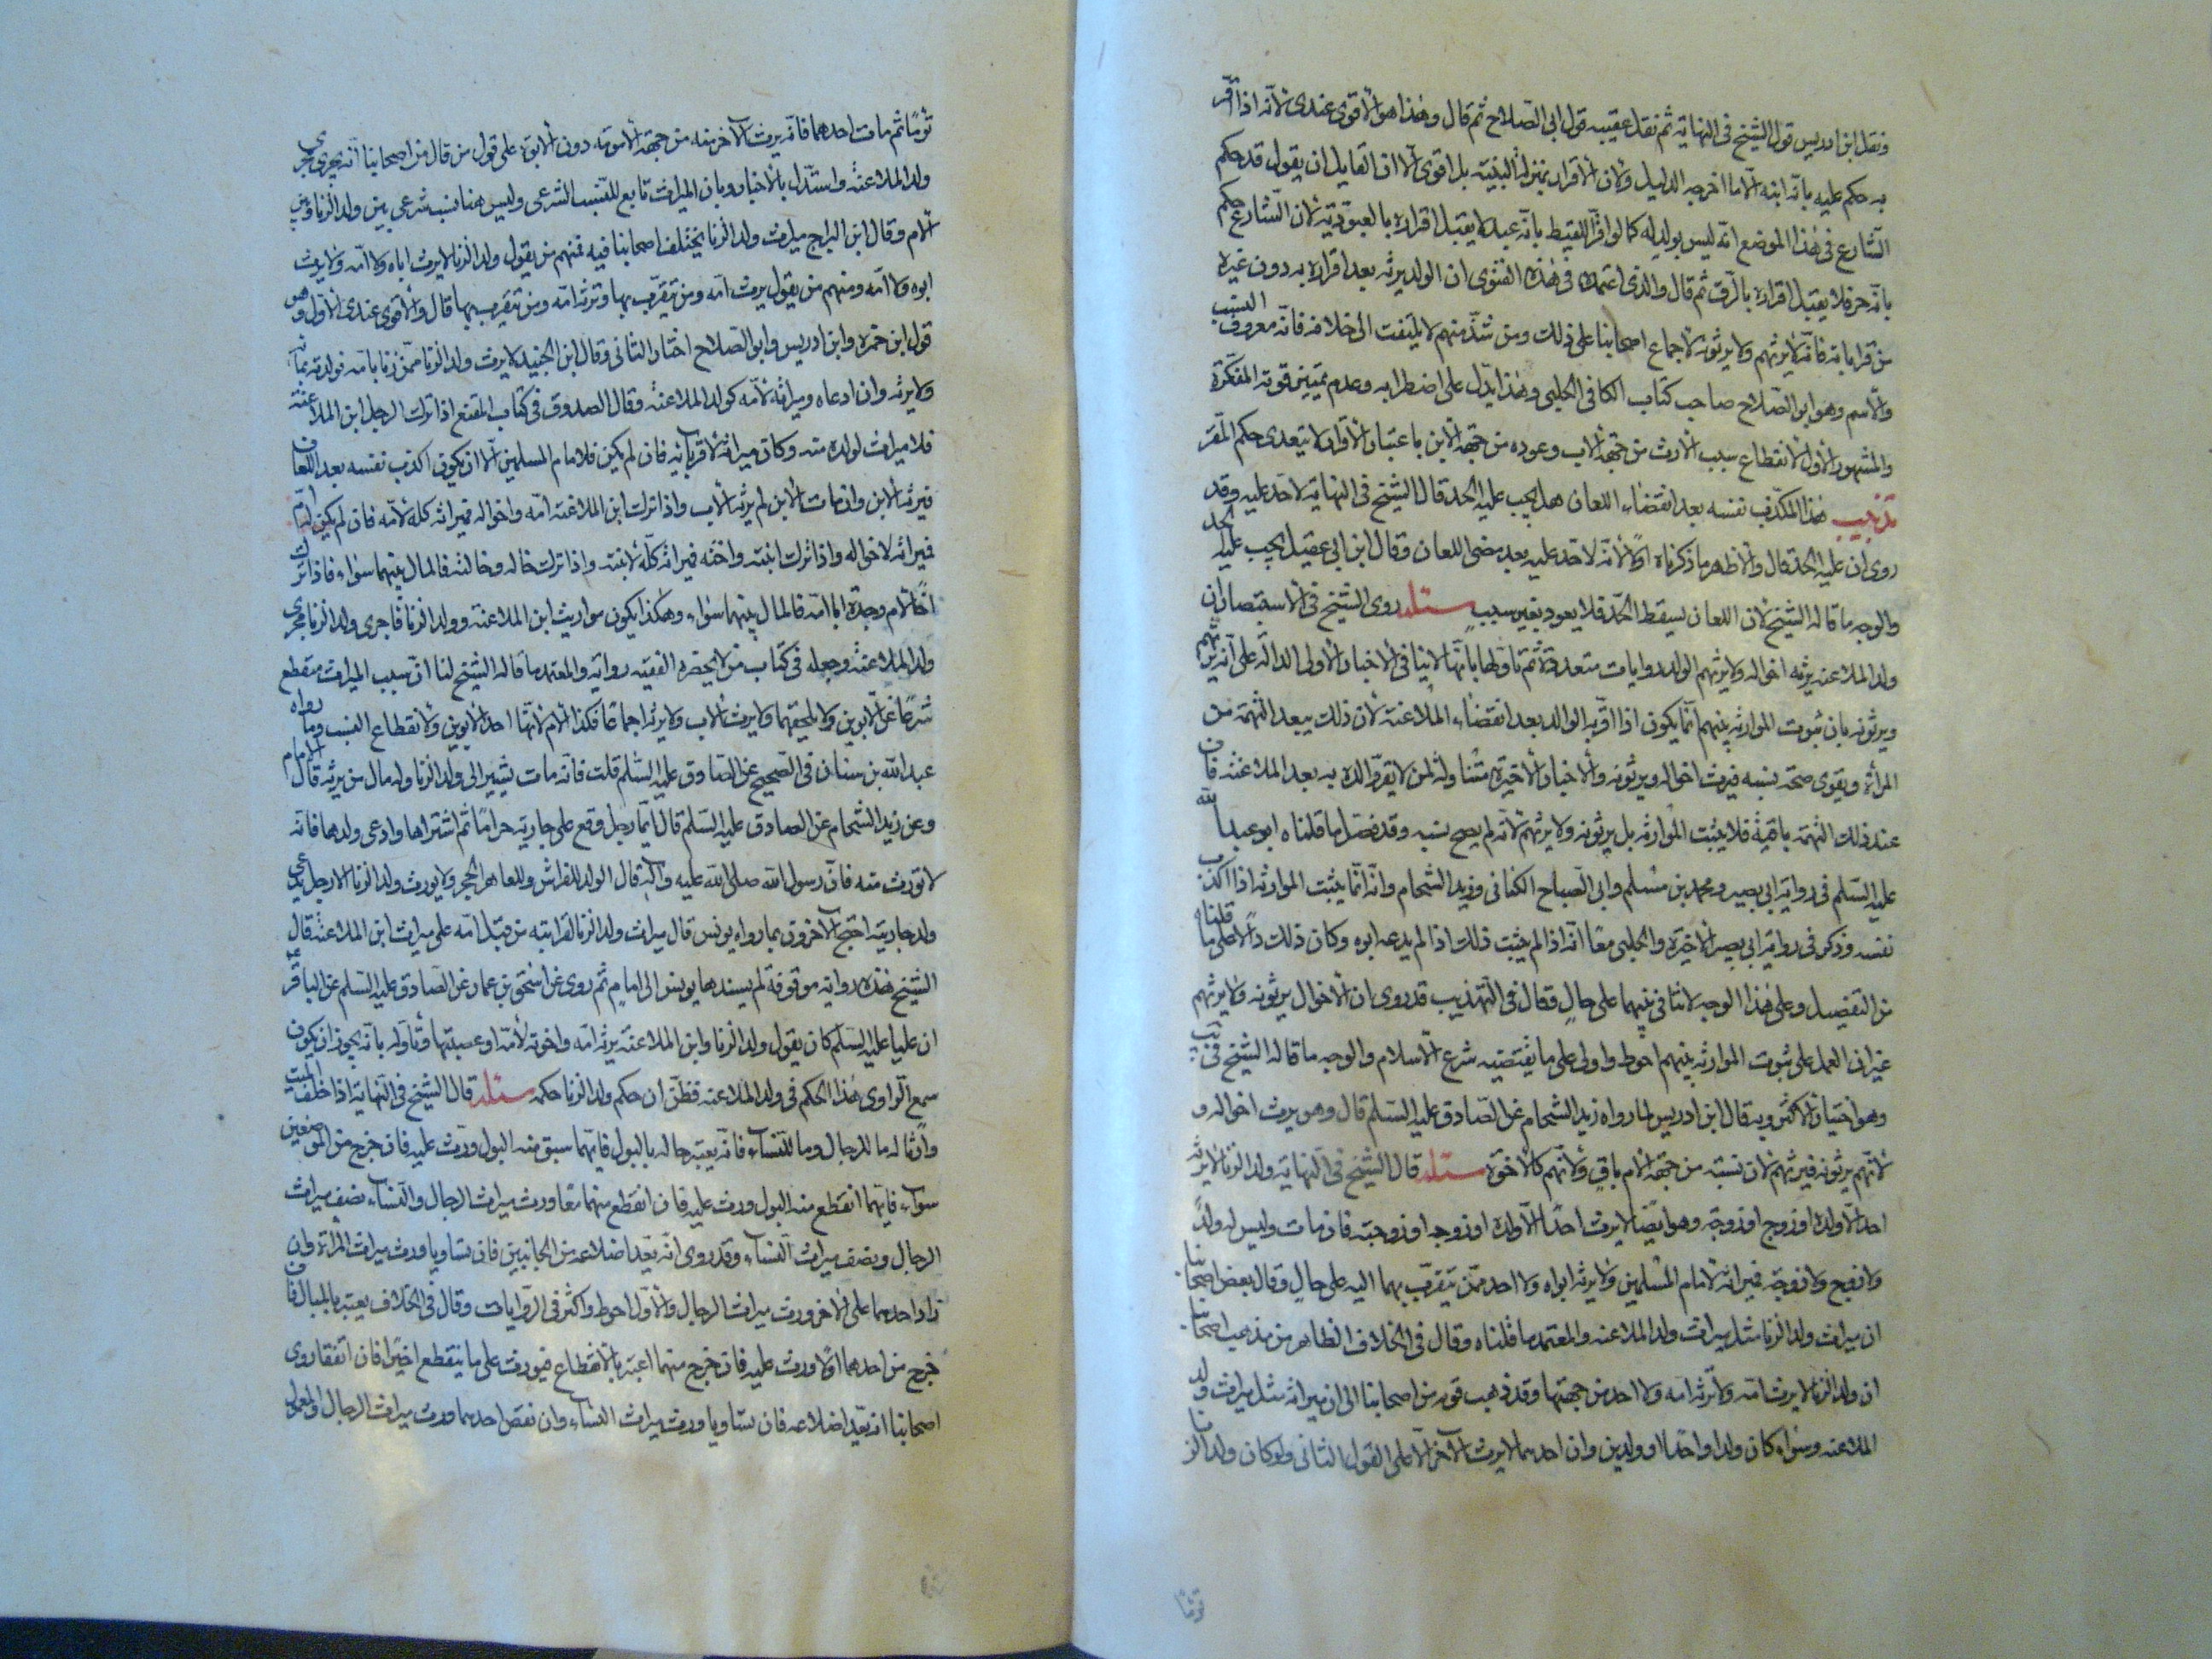 ونقل ابن ادريس قول الشيخ فى النهاية ثم نقل عقيبه قول ابى الصلاح ثم قال وهذا هو الاقوى عندى لانه اذا اقر
به حكم عليه بانه ابنه الا ما اخرجه الدليل ولان الاقرار بمنزلة البينة بل اقوى الا ان لقايل ان يقول قد حكم
الشارع فى هذا الموضع انه ليس بولد له كما لو اقر اللقيط بانه عبد لا يقبل اقراره بالعبودية لان الشارع حكم
بانه حر فلا يقبل اقراره بالرق ثم قال والذى اعتمده فى هذه الفتوى ان الولد يرثه بعد اقراره به دون غيره
من قراباته فانه لا يرثهم ولا يرثونه لاجماع اصحابنا على ذلك ومن شذ منهم لا يلتفت الى خلافه فانه معروف النسب
والاسم وهو ابو الصلاح صاحب كتاب الكافى الحلبى وهذا يدل على اضطرابه وعدم تميين قوته المفكرة
والمشهور الاول لانقطاع سبب الارث من جهة الاب وعوده من جهة الابن باعتبار الاقرار لا يتعدى حكم المقر
تذنيب هذا المكذب نفسه بعد انقضاء اللعان هل يجب عليه الحد قال الشيخ فى النهاية لا حد عليه وقد
روى ان عليه الحد قال والاظهر ما ذكرناه اولا لانه لا حد عليه بعد مضى اللعان وقال ابن ابى عقيل يجب عليه الحد
والوجه ما قاله الشيخ لان اللعان يسقط الحد فلا يعود بغير سبب مسئلة روى الشيخ فى الاستبصار ان
ولد الملاعنة يرثه اخواله ولا يرثهم الولد روايات متعددة ثم تاولها بانها لا ينافى الاخبار الاولى الدالة على انه يرثهم
ويرثونه بان ثبوت الموارثة بينهم انما يكون اذا اقر به الوالد بعد انقضاء الملاعنة لان ذلك يبعد التهمة من
المراة ويقوى صحة نسبه فيرث اخواله ويرثونه والاخبار الاخيرة متناولة لمن لا يقر والده به بعد الملاعنة فان
عند ذلك التهمة باقية فلا يثبت الموارثة بل يرثونه ولا يرثهم لانه لم يصح نسبه وقد فصل ما قلناه ابو عبد الله
عليه السلم فى رواية ابى بصير ومحمد بن مسلم وابى الصباح الكنانى وزيد الشحام وانه انما يثبت الموارثة اذا اكذب
نفسه وذكر فى رواية ابى بصير الاخيرة والحلبى معا انه اذا لم يثبت ذلك اذا لم يدعه ابوه وكان ذلك دالا على ما قلناه
من التفصيل وعلى هذا الوجه لا تنافى بينهما على حال وقال فى التهذيب قد روى ان الاخوال يرثونه ولا يرثهم
غير ان العمل على ثبوت الموارثة بينهم احوط واولى على ما يقتضيه شرع الاسلام والوجه ما قاله الشيخ فى يب
وهو اختيار الاكثر وبه قال ابن ادريس لما رواه زيد الشحام عن الصادق عليه السلم قال وهو يرث اخواله و
لانهم يرثونه فيرثهم لان نسبته من جهة الام باق ولانهم كالاخوة مسئلة قال الشيخ فى النهاية ولد الزنا لا يرثه
احد الا ولده او زوج او زوجة وهو ايضا لا يرث احدا الا ولده او زوجه او زوجته فان مات وليس له ولد
ولا زوج ولا زوجة فميراثه لامام المسلمين ولا يرثه ابواه ولا احد ممن يتقرب بهما اليه على حال وقال بعض اصحابنا
ان ميراث ولد الزنا مثل ميراث ولد الملاعنة والمعتمد ما قلناه وقال فى الخلاف الظاهر من مذهب اصحابنا
ان ولد الزنا لا يرث امه ولا ترثه امه ولا احد من جهتها وقد ذهب قوم من اصحابنا الى ان ميراثه مثل ميراث ولد
الملاعنة وسواء كان ولدا واحدا او ولدين وان احدهما لا يرث الاخر الا على القول الثانى ولو كان ولد الزنا
توما
توما ثم مات احدهما فانه يرث الاخر منه من جهة الامومة دون الابوة على قول من قال من اصحابنا انه يجرى مجرى
ولد الملاعنة واستدل بالاخبار وبان الميراث تابع للنسب الشرعى وليس هنا نسب شرعى بين ولد الزنا وبين
الام وقال ابن البراج ميراث ولد الزنا يختلف اصحابنا فيه فمنهم من يقول ولد الزنا لا يرث اباه ولا امه ولا يرثه
ابوه ولا امه ومنهم من يقول يرث امه ومن يتقرب بها وترثه امه ومن يتقرب بها قال والاقوى عندى الاول وهو
قول ابن حمزة وابن ادريس وابو الصلاح اختار الثانى وقال ابن الجنيد لا يرث ولد الزنا ممن زنا بامه فولدته بمائه
ولا يرثه وان ادعاه وميراثه لامه كولد الملاعنة وقال الصدوق فى كتاب المقنع اذا ترك الرجل ابن الملاعنة
فلا ميراث لولده منه وكان ميراثه لاقربائه فان لم يكن فلامام المسلمين الا ان يكون اكذب نفسه بعد اللعان
فيرثه الابن وان مات الابن لم يرثه الاب واذا ترك ابن الملاعنة امه واخواله فميراثه كله لامه فان لم يكن له ام
فميراثه لاخواله واذا ترك ابنته واخته فميراثه كله لابنته واذا ترك خاله وخالته فالمال بينهما سواء فاذا ترك
اخا لام وجدة ابا امه فالمال بينهما سواء وهكذا يكون مواريث ابن الملاعنة وولد الزنا فاجرى ولد الزنا مجرى
ولد الملاعنة وجعله فى كتاب من لا يحضره الفقيه رواية والمعتمد ما قاله الشيخ لنا ان سبب الميراث منقطع
شرعا عن الابوين ولا يلحقهما ولا يرث الاب ولا يرثه اجماعا فكذا الام لانها احد الابوين ولانقطاع النسب وما رواه
عبد الله بن سنان فى الصحيح عن الصادق عليه السلم قلت فانه مات يشير الى ولد الزنا وله مال من يرثه قال الامام
وعن زيد الشحام عن الصادق عليه السلم قال ايما رجل وقع على جارية حراما ثم اشتراها وادعى ولدها فانه
لا يورث منه فان رسول الله صلى الله عليه وآله قال الولد للفراش وللعاهر الحجر ولا يورث ولد الزنا الا رجل يدعى
ولد جاريته احتج الاخرون بما رواه يونس قال ميراث ولد الزنا لقرابته من قبل امه على ميراث ابن الملاعنة قال
الشيخ هذه رواية موقوفة لم يسندها يونس الى امام ثم روى عن اسحق بن عمار عن الصادق عليه السلم عن الباقر
ان عليا عليه السلم كان يقول ولد الزنا وابن الملاعنة يرثه امه واخوته لامه او عصبتها وتاوله بانه يجوز ان يكون
سمع الراوى هذا الحكم فى ولد الملاعنة فظن ان حكم ولد الزنا حكمه مسئلة قال الشيخ فى النهاية اذا خلف الميت
وارثا له ما للرجال وما للنساء فانه يعتبر حاله بالبول فايهما سبق منه البول ورث عليه فان خرج من الموضعين
سواء فايهما انقطع منه البول ورث عليه فان انقطع منهما معا ورث ميراث الرجال والنساء نصف ميراث
الرجال ونصف ميراث النساء وقد روى انه يعد اضلاعه من الجانبين فان تساويا ورث ميراث المراة وان
زاد احدهما على الاخر ورث ميراث الرجال والاول احوط واكثر فى الروايات وقال فى الخلاف يعتبر بالمبال فان
خرج من احدهما اولا ورث عليه فان خرج منهما اعتبر بالانقطاع فيورث على ما ينقطع اخيرا فان اتفقا روى
اصحابنا انه يعد اضلاعه فان تساويا ورث ميراث النساء وان نقص احدهما ورث ميراث الرجال والمعمول